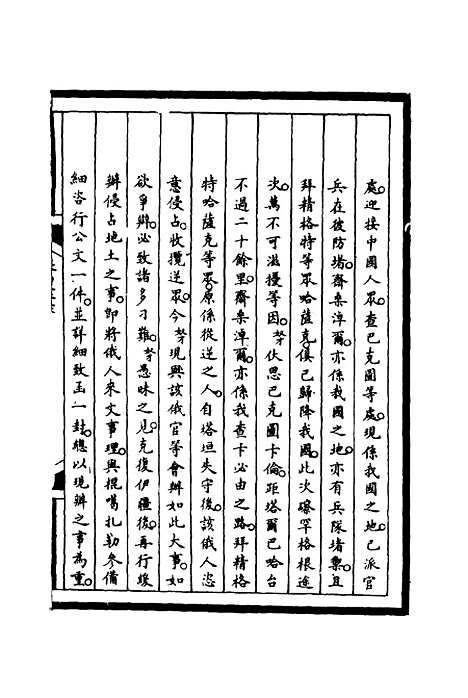 處迎接中國人衆查巴克圖等處現係我國之地已派官
兵在彼防堵齋桑淖爾亦係我國之地亦有兵隊堵禦且
拜精格特等衆哈薩克俱已歸降我國此次瑮罕格根途
次萬不可滋擾等因勞伏思巴克圖卡倫距塔爾巴哈台
不過二十餘里齋桑淖爾亦係我查卡必由之路拜精格
特哈薩克等衆原係從逆之人自塔垣失守後該俄人恣
意侵占收攬逆衆今勞現與該俄官等會辦如此大事如
欲爭辯必致諸多刁難勞愚昧之見克復伊疆後再行妥
辦侵占地土之事即將俄人來文事理與棍噶扎勒參備
細咨行公文一件並詳細致函一封總以現辦之事為重